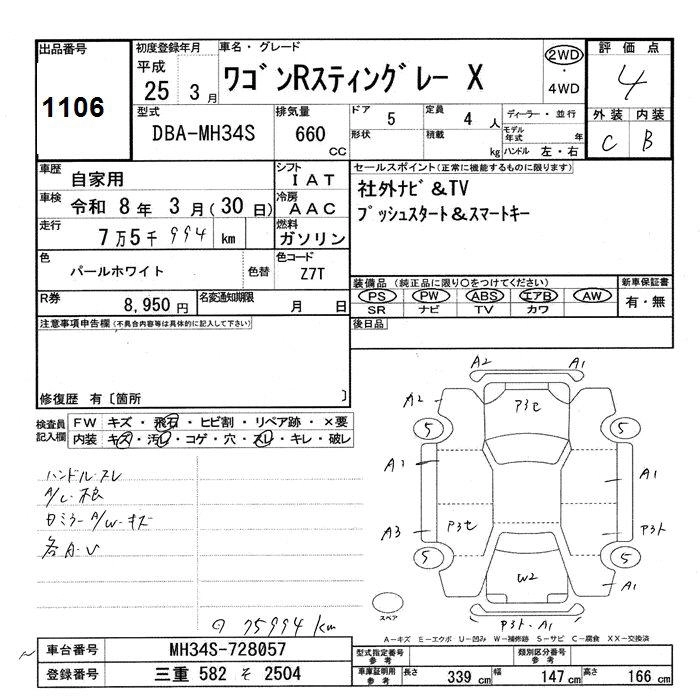 出品番号
1106
初度登録年月
平成
25 3月
車名・グレード
ワゴンRスティングレー X
2WD
・
4WD
評価点
4
外装 内装
C B
型式
DBA-MH34S
排気量
660
CC
ドア 5
形状
定員 4 人
積載 kg
ディーラー・並行
モデル年式 年
ハンドル 左・右
車歴
自家用
シフト
IAT
車検
令和 8年 3月(30日)
冷房
AAC
走行
7万5千994 km
燃料
ガソリン
セールスポイント(正常に機能するものに限ります)
社外ナビ&TV
プッシュスタート&スマートキー
色
パールホワイト
色替
色コード
Z7T
装備品(純正品に限り○をつけてください)
新車保証書
PS PW ABS エアB AW
有・無
SR ナビ TV カワ
R券
8,950円
名変通知期限
月 日
後日品
注意事項申告欄(不具合内容等は具体的に記入して下さい)
修復歴 有〔箇所 〕
検査員
記入欄
FW キズ・飛石・ヒビ割・リペア跡・×要
内装 キズ・汚レ・コゲ・穴・スレ・キレ・破レ
ハンドル・スレ
A/L・木目
ロミラーA/W・キズ
各A・U
75994 km
A2 A1
A2
P3セ
5 5
A1 A1
A3 P3セ P3ト
5 5
W2
A1
P3ト・A1
スペア
A-キズ E-エクボ U-凹み W-補修跡 S-サビ C-腐食 XX-交換済
車台番号 MH34S-728057
登録番号 三重 582 そ 2504
型式指定番号
参考
類別区分番号
参考
車庫証明用
参考
長さ 339 cm
幅 147 cm
高さ 166 cm